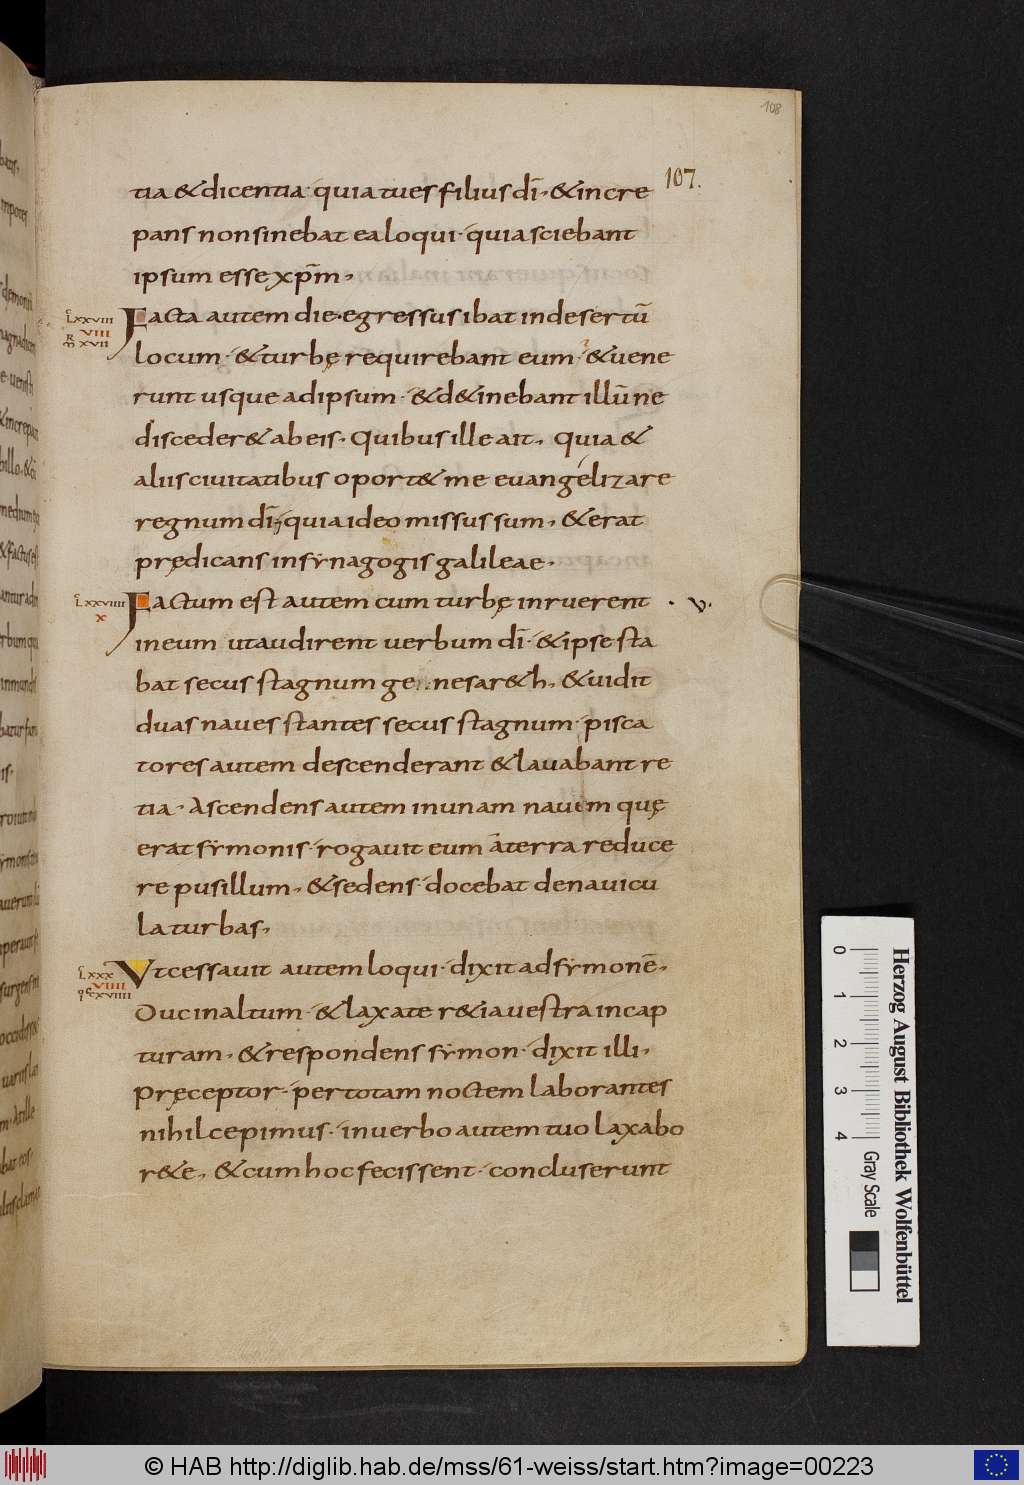 108
107.
tia & dicentia· quia tu es filius dī, & incre
pans non sinebat ea loqui· quia sciebant
ipsum esse xp̄m,
Facta autem die· egressus ibat in desertū
L̄XXVIII
VIII
XVII
locum· & turbę requirebant eum· & uene
runt usque ad ipsum· & d&inebant illū ne
disceder& ab eis· Quibus ille ait, quia &
aliis ciuitatibus oport& me euangélizare
regnum dī, quia ideo missus sum, & erat
prędicans in synagogis galileae·
Factum est autem cum turbę inruerent · v·
LXXVIIII
X
in eum ut audirent uerbum dī· & ipse sta
bat secus stagnum ge..nesar&h, & uidit
duas naues stantes secus stagnum· pisca
tores autem descenderant & lauabant re
tia· Ascendens autem in unam nauem quę
erat symonis· rogauit eum a terra reduce
re pusillum, & sedens· docebat de nauicu
la turbas,
Ut cessauit autem loqui· dixit ad symonē,
LXXX
VIIII
CCXVIIII
Duc in altum· & laxate r&ia uestra in cap
turam, & respondens symon· dixit illi,
Pręceptor· per totam noctem laborantes
nihil cepimus· in uerbo autem tuo laxabo
r&e, & cum hoc fecissent· concluserunt
Herzog August Bibliothek Wolfenbüttel
0 1 2 3 4 Gray Scale
© HAB http://diglib.hab.de/mss/61-weiss/start.htm?image=00223